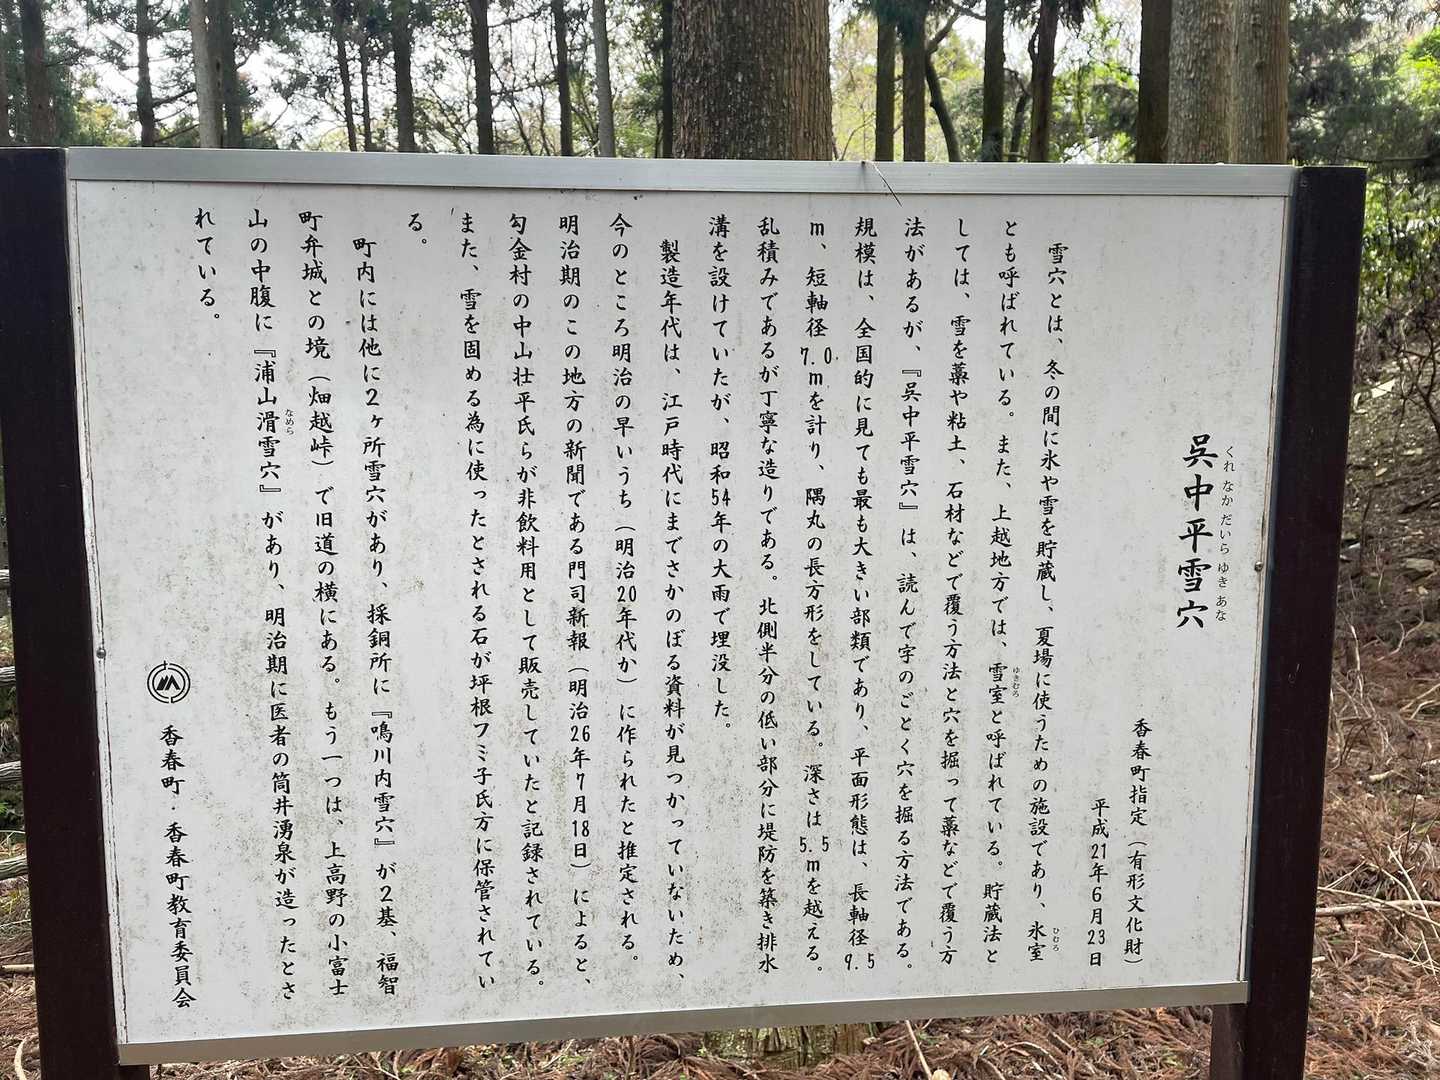 呉中平雪穴
くれなかだいらゆきあな
香春町指定（有形文化財）
平成21年6月23日
雪穴とは、冬の間に氷や雪を貯蔵し、夏場に使うための施設であり、氷室
ひむろ
とも呼ばれている。また、上越地方では、雪室と呼ばれている。貯蔵法と
ゆきむろ
しては、雪を藁や粘土、石材などで覆う方法と穴を掘って藁などで覆う方
法があるが、『呉中平雪穴』は、読んで字のごとく穴を掘る方法である。
規模は、全国的に見ても最も大きい部類であり、平面形態は、長軸径9.5
m、短軸径7.0mを計り、隅丸の長方形をしている。深さは5.5mを越える。
乱積みであるが丁寧な造りである。北側半分の低い部分に堤防を築き排水
溝を設けていたが、昭和54年の大雨で埋没した。
製造年代は、江戸時代にまでさかのぼる資料が見つかっていないため、
今のところ明治の早いうち（明治20年代か）に作られたと推定される。
明治期のこの地方の新聞である門司新報（明治26年7月18日）によると、
勾金村の中山壮平氏らが非飲料用として販売していたと記録されている。
また、雪を固める為に使ったとされる石が坪根フミ子氏方に保管されてい
る。
町内には他に2ヶ所雪穴があり、採銅所に『鳴川内雪穴』が2基、福智
町弁城との境（畑越峠）で旧道の横にある。もう一つは、上高野の小富士
山の中腹に『浦山滑雪穴』があり、明治期に医者の筒井湧泉が造ったとさ
なめら
れている。
香春町・香春町教育委員会